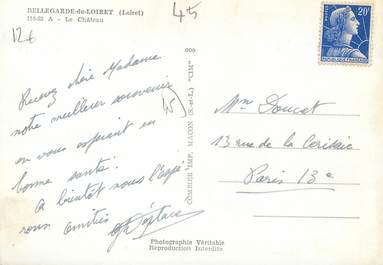 BELLEGARDE-du-LOIRET (Loiret)
115-62 A - Le Château
12 €
45
Recevez chère Madame
notre meilleur souvenir
en vous espérant en
bonne santé.
A bientôt nous l'espé-
rons amitiés
45
600
COMBIER IMP. MACON (S.-et-L.) "CIM"
Photographie Véritable
Reproduction Interdite
20F
Mme Doucet
13 rue de la
Paris 13e